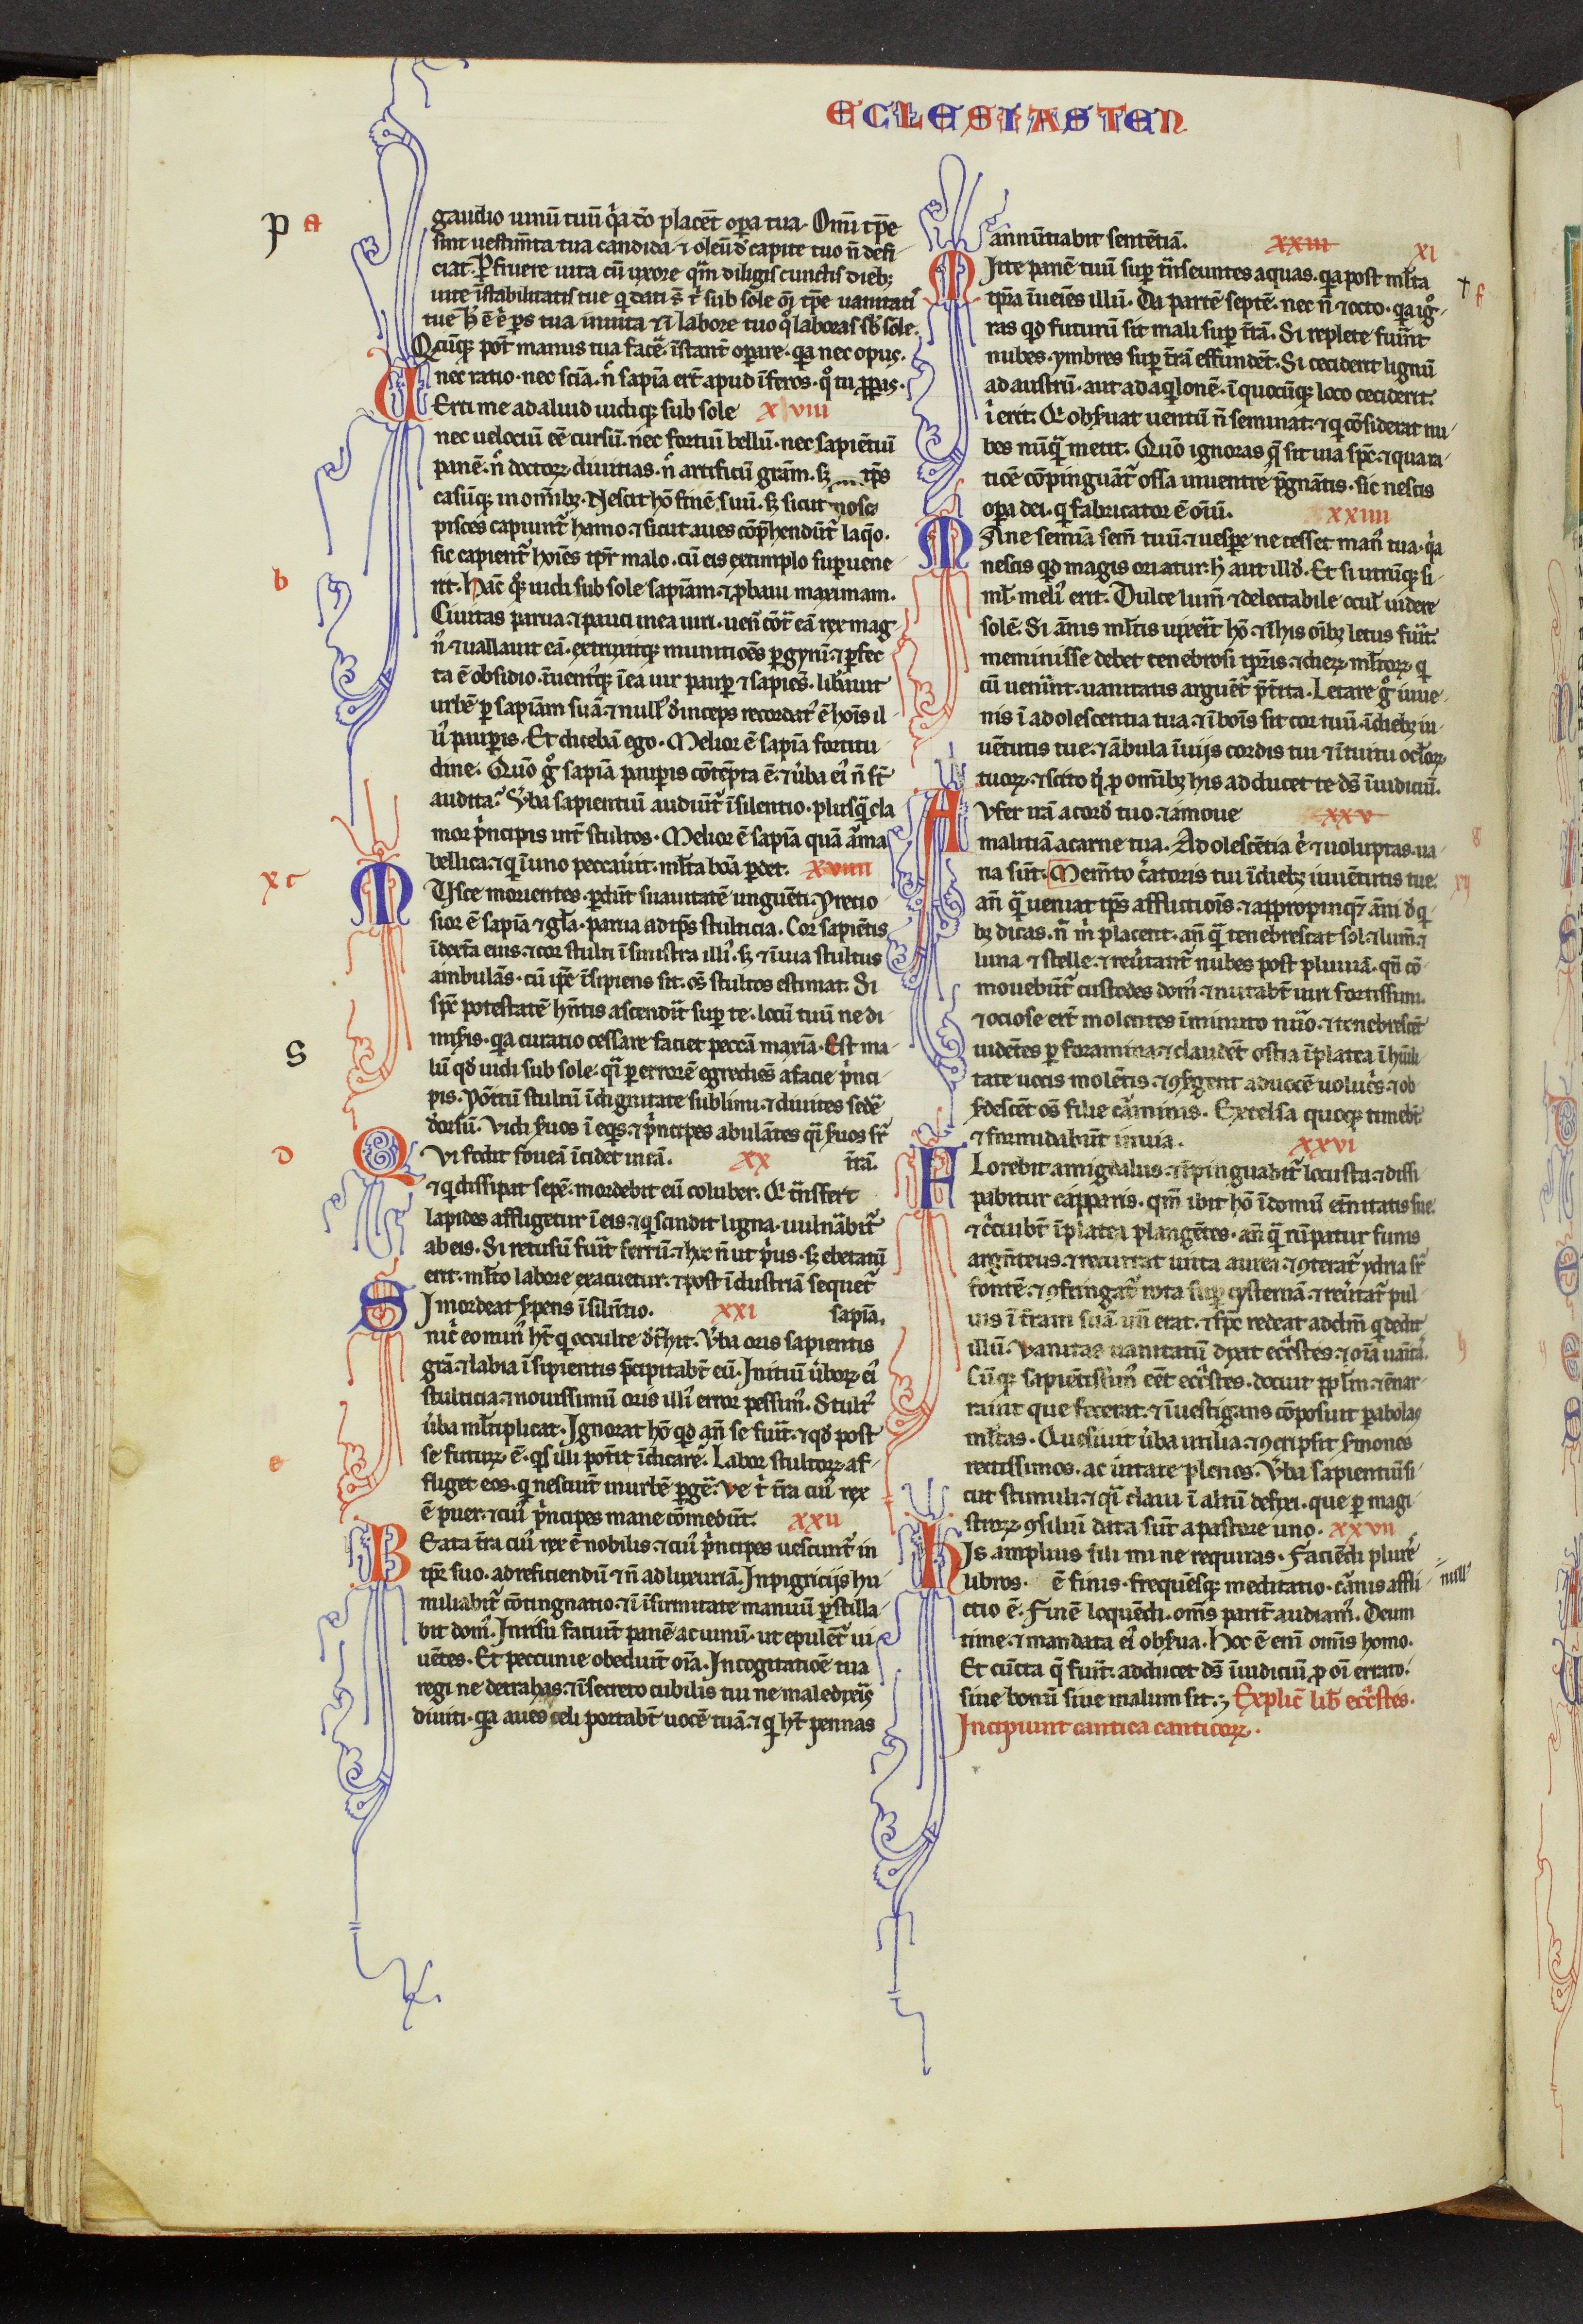 ECLESIASTEN
P a
gaudio uinū tuū q̓a dō placēt oꝑa tua. Om̄i tp̄e
sint uestim̄ta tua candida ⁊ oleū d̓ capite tuo n̄ defi
ciat. Ꝑfruere uita cū uxore qm̄ diligis cunctis dieb;
uite īstabilitatis tue q̓ dati s̄t t̓ sub sole om̄i tp̄e uanitati᷒
tue h̓ ē ē̓ ꝑs tua inuita ⁊ ī labore tuo q̊ laboras sb̓ sole.
Qcūq; pot̄ manus tua facē̓. īstant̓ oꝑare. q̓a nec opus.
nec ratio. nec sciā. n̄ sapiā er̄t apud īferos. q̊ tu ꝓꝑas.
Erti me ad aliud uidiq; sub sole xviii
nec uelociū eē cursū. nec fortiū bellū. nec sapiētiū
panē. n̄ doctoꝝ diuitias. n̄ artificū grām. sꝫ tp̄s
casūq; in om̄ibꝫ. Nescit hō finē suū. sꝫ sicut
pisces capiunt̄ hamo. ⁊ sicut aues cōp̄hendūt̄ laq̄o.
sic capient̄ hoīes tp̄r malo. cū eis extimplo suꝑuene
b
rit. Hāc q̊q; uidi sub sole sapiām. ⁊ ꝓbaui maximam.
Ciuitas parua. ⁊ pauci in ea uiri. uen̄ cōt̄ eā rex mag
n᷒. ⁊ uallauit eā. extruxitq; munitiōes ꝑ gyrū. ⁊ ꝑfec
ta ē obsidio. īuent᷒q; ī ea uir pauꝑ ⁊ sapiēs. lib̓auit
urbē ꝑ sapiām suā. ⁊ null᷒ d̓inceps recordat᷒ ē hoīs il
li᷒ pauꝑis. Et dicebā ego. Melior ē sapiā fortitu
dine. Quō g̊ sapiā pauꝑis cōtēpta ē. ⁊ ūba ei᷒ n̄ st̄
audita? V̄ba sapientiū audiūt̄ ī silentio. plusq̄ cla
mor p̓ncipis int̄ stultos. Melior ē sapiā quā arma
bellica. ⁊ q̓ ī uno peccau̓it. ml̄ta boā ꝑdet. xviiii
x c
Vsce morientes. ꝑdūt suauitatē unguēti. Precio
sior ē sapiā ⁊ gl̄a. parua ad tp̄s stulticia. Cor sapiētis
ī dext̄a eius. ⁊ cor stulti ī sinistra illi᷒. sꝫ ⁊ ī uia stultus
ambulās. cū ip̄e īsipiens sit. oēs stultos estimat. Si
sp̄c potestatē hn̄tis ascendit suꝑ te. locū tuū ne di
miseris. q̓a curatio cessare faciet peccā maxīa. Est ma
S
lū qd̓ uidi sub sole. q̓i ꝑ errorē egrediēs a facie p̓nci
pis. Pōitū stultū ī dignitate sublimi. ⁊ diuites sedē
d̓orsū. Vidi s̓uos ī eq̓s. ⁊ p̓ncipes abulātes q̓i s̓uos sr̄
d
Vi fodit foueā īcidet in eā. xx t̄rā.
⁊ q̓ dissipat sepē. mordebit eū coluber. Q̓ t̄nsfert
lapides affligetur ī eis. ⁊ q̓ scindit ligna. uuln̄abit̄
ab eis. Si retusū fuīt ferrū. ⁊ hoc n̄ ut p̓us. sꝫ ebetatū
erit. ml̄to labore exacuetur. ⁊ post ī dustriā sequet̄
I mordeat s̓pens ī siln̄tio. xxi sapiā.
nic̄ eo min᷒ hт̄ q̓ occulte d̓t̓hit. V̄ba oris sapientis
grā. ⁊ labia īsipientis p̄cipitabt̄ eū. Initiū ūboꝝ ei᷒
stulticia. ⁊ nouissimū oris illi᷒ error pessim᷒. Stult᷒
ūba ml̄tiplicat. Ignorat hō qd̓ an̄ se fuīt. ⁊ qd̓ post
e
se futurꝝ ē. q̓s illi pot̓it īdicare? Labor stultoꝝ af
fliget eos. q̓ nesciūt in urbē ꝑgē̓. Ve t̓ t̄ra cui᷒ rex
ē puer. ⁊ cui᷒ p̓ncipes mane cōmedūt. xxii
Eata t̄ra cui᷒ rex ē nobilis. ⁊ cui᷒ p̓ncipes uescunt̄ in
tp̄r suo. ad reficiendū ⁊ n̄ ad luxuriā. In pigricijs hu
miliabit̄ cōtingnatio. ⁊ ī īfirmitate manuū ꝑstilla
bit dom᷒. In risu faciūt panē ac uinū. ut epulēt̄ ui
uētes. Et peccunie obediūt oīa. In cogitatiōe tua
regi ne detrahas. ⁊ ī secreto cubilis tui ne maledixeis
diuiti. q̓a aues celi portabt̄ uocē tuā. ⁊ q̓ ht̄ pennas
annūtiabit sentētiā. xxiii xi
Itte panē tuū suꝑ t̄nseuntes aquas. q̓a post ml̄ta
† f
tp̄ra īueīes illū. Da partē septē. nec n̄ ⁊ octo. q̓a ig̊
ras qd̓ futurū sit mali suꝑ t̄rā. Si replete fuīnt
nubes. ymbres suꝑ t̄rā effundēt. Si ceciderit lignū
ad austrū. aut ad aq̓lonē. ī quocūq; loco ceciderit.
ī̓ erit. Q̓ obs̓uat uentū n̄ seminat. ⁊ q̓ cōsiderat nu
bes nūq̄ metit. Quō ignoras q̄ sit uia sp̄c. ⁊ qua ra
tiōe cōpinguāt̄ ossa in uentre p̄gnātis. sic nescis
oꝑa dei. q̓ fabricator ē oīū. xxiiii
Ane semīa sem̄ tuū. ⁊ uesꝑe ne cesset man᷒ tua. q̓a
nescis qd̓ magis oriatur. h̓ aut illd̓. Et si utrūq; si
ml̄. meli᷒ erit. Dulce lum̄ ⁊ delectabile ocul̄ uidere
solē. Si ānis ml̄tis uixeīt hō. ⁊ ī his oībꝫ letus fuīt.
meminisse debet tenebrosi tp̄ris. ⁊ dieꝝ ml̄toꝝ q̓
cū uenīnt. uanitatis arguēt̄ p̄t̓ita. Letare g̊ iuue
nis ī adolescentia tua. ⁊ ī boīs sit cor tuū. ī diebꝫ iu
uētutis tue. ⁊ ābula ī uijs cordis tui ⁊ ītuitu ocl̄oꝝ
tuoꝝ. ⁊ scito q̓ ꝓ om̄ibꝫ his adducet te ds̄ ī iudiciū.
Vfer irā a cord̓ tuo. ⁊ āmoue xxv
malitiā a carne tua. Adolescētia ē̓ ⁊ uoluptas. ua
8
na sūt. Mem̄to c̓atoris tui ī diebꝫ iuuētutis tue. xij
an̄ q̄ ueniat tp̄s afflictiōis. ⁊ appropinq̄t āni d̓ q̓
bꝫ dicas. n̄ m̓ placent. an̄ q̄ tenebrescat sol. ⁊ lum̄. ⁊
luna ⁊ stelle. ⁊ reūtant̄ nubes post pluuiā. qn̄ cō
mouebūt̄ custodes dom᷒. ⁊ nutabt̄ uiri fortissimi.
⁊ ociose erūt molentes ī minuto nūo. ⁊ tenebrescēt
uidētes ꝑ foramina. ⁊ claudēt ostia ī platea ī hūili
tate uocis molētis. ⁊ ꝯsurgent ad uocē uoluc̓s. ⁊ ob
surdescēt oēs filie carminis. Excelsa quoq; timebt̄
⁊ formidabūt in uia. xxvi
Lorebit amigdalus. ⁊ īpinguabit̄ locusta. ⁊ dissi
pabitur capparis. qm̄ ibit hō ī domū et̄nitatis sue.
⁊ c̓cuibt̄ ī platea plangētes. an̄ q̄ rūpatur funis
argn̄teus. ⁊ recurrat uitta aurea. ⁊ ꝯterat̄ ydria sr̄
fontē. ⁊ ꝯfringat̄ rota suꝑ cysternā. ⁊ reūtat̄ pul
uis ī t̄ram suā un̄ erat. ⁊ sp̄c redeat ad dm̄ q̓ dedit
illū. Vanitas uanitatū dixit ecc̄stes. ⁊ oīa uāitā.
Cūq; sapiētissim᷒ eēt ecc̄stes. docuit ppl̄m. ⁊ enar
rauit que fecerat. ⁊ īuestigans cōposuit ꝑabolas
ml̄tas. Quesiuit ūba utilia. ⁊ ꝯcripsit s̓mones
rectissimos. ac ūitate plenos. V̄ba sapientiū si
cut stimuli. ⁊ q̓i claui ī altū defixi. que ꝑ magi
stroꝝ ꝯsiliū data sūt a pastore uno. xxvii
Is amplius fili mi ne requiras. Faciēdi plures
libros. ē finis. frequēsq; meditatio. carnis affli null᷒
ctio ē. Finē loquēdi. om̄s parit̄ audiam᷒. Deum
time. ⁊ mandata ei᷒ obs̓ua. Hoc ē enī om̄is homo.
Et cūcta q̄ fiūt. adducet ds̄ ī iudiciū ꝓ oī errato.
siue bonū siue malum sit. Explic̄ lib̄ ecc̄stes.
Incipiunt cantica canticoꝝ.